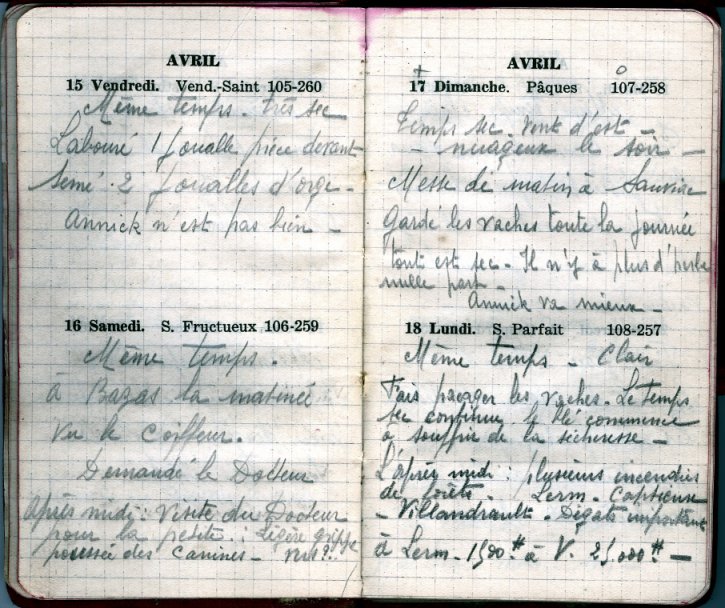 AVRIL
15 Vendredi. Vend.-Saint 105-260
Même temps. très sec
Labouré 1 joualle pièce devant
Semé 2 joualles d'orge -
Annick n'est pas bien -
16 Samedi. S. Fructueux 106-259
Même temps.
à Bazas la matinée
Vu le coiffeur.
Demandé le Docteur
Après midi : Visite du Docteur
pour la petite : Légère grippe
poussée des canines -
AVRIL
17 Dimanche. Pâques 107-258
Temps sec. vent d'est -
- nuageux le soir -
Messe de matin à
Gardé les vaches toute la journée
tout est sec - Il n'y à plus d'herbe
nulle part -
Annick va mieux -
18 Lundi. S. Parfait 108-257
Même temps - Clair
Fais pacager les vaches. Le temps
sec continue. le blé commence
à souffrir de la sécheresse -
L'après midi : plusieurs incendies
de forêts - Lerm - Captieux
- Villandrault - Dégâts importants
à Lerm - à V. 25.000 # -